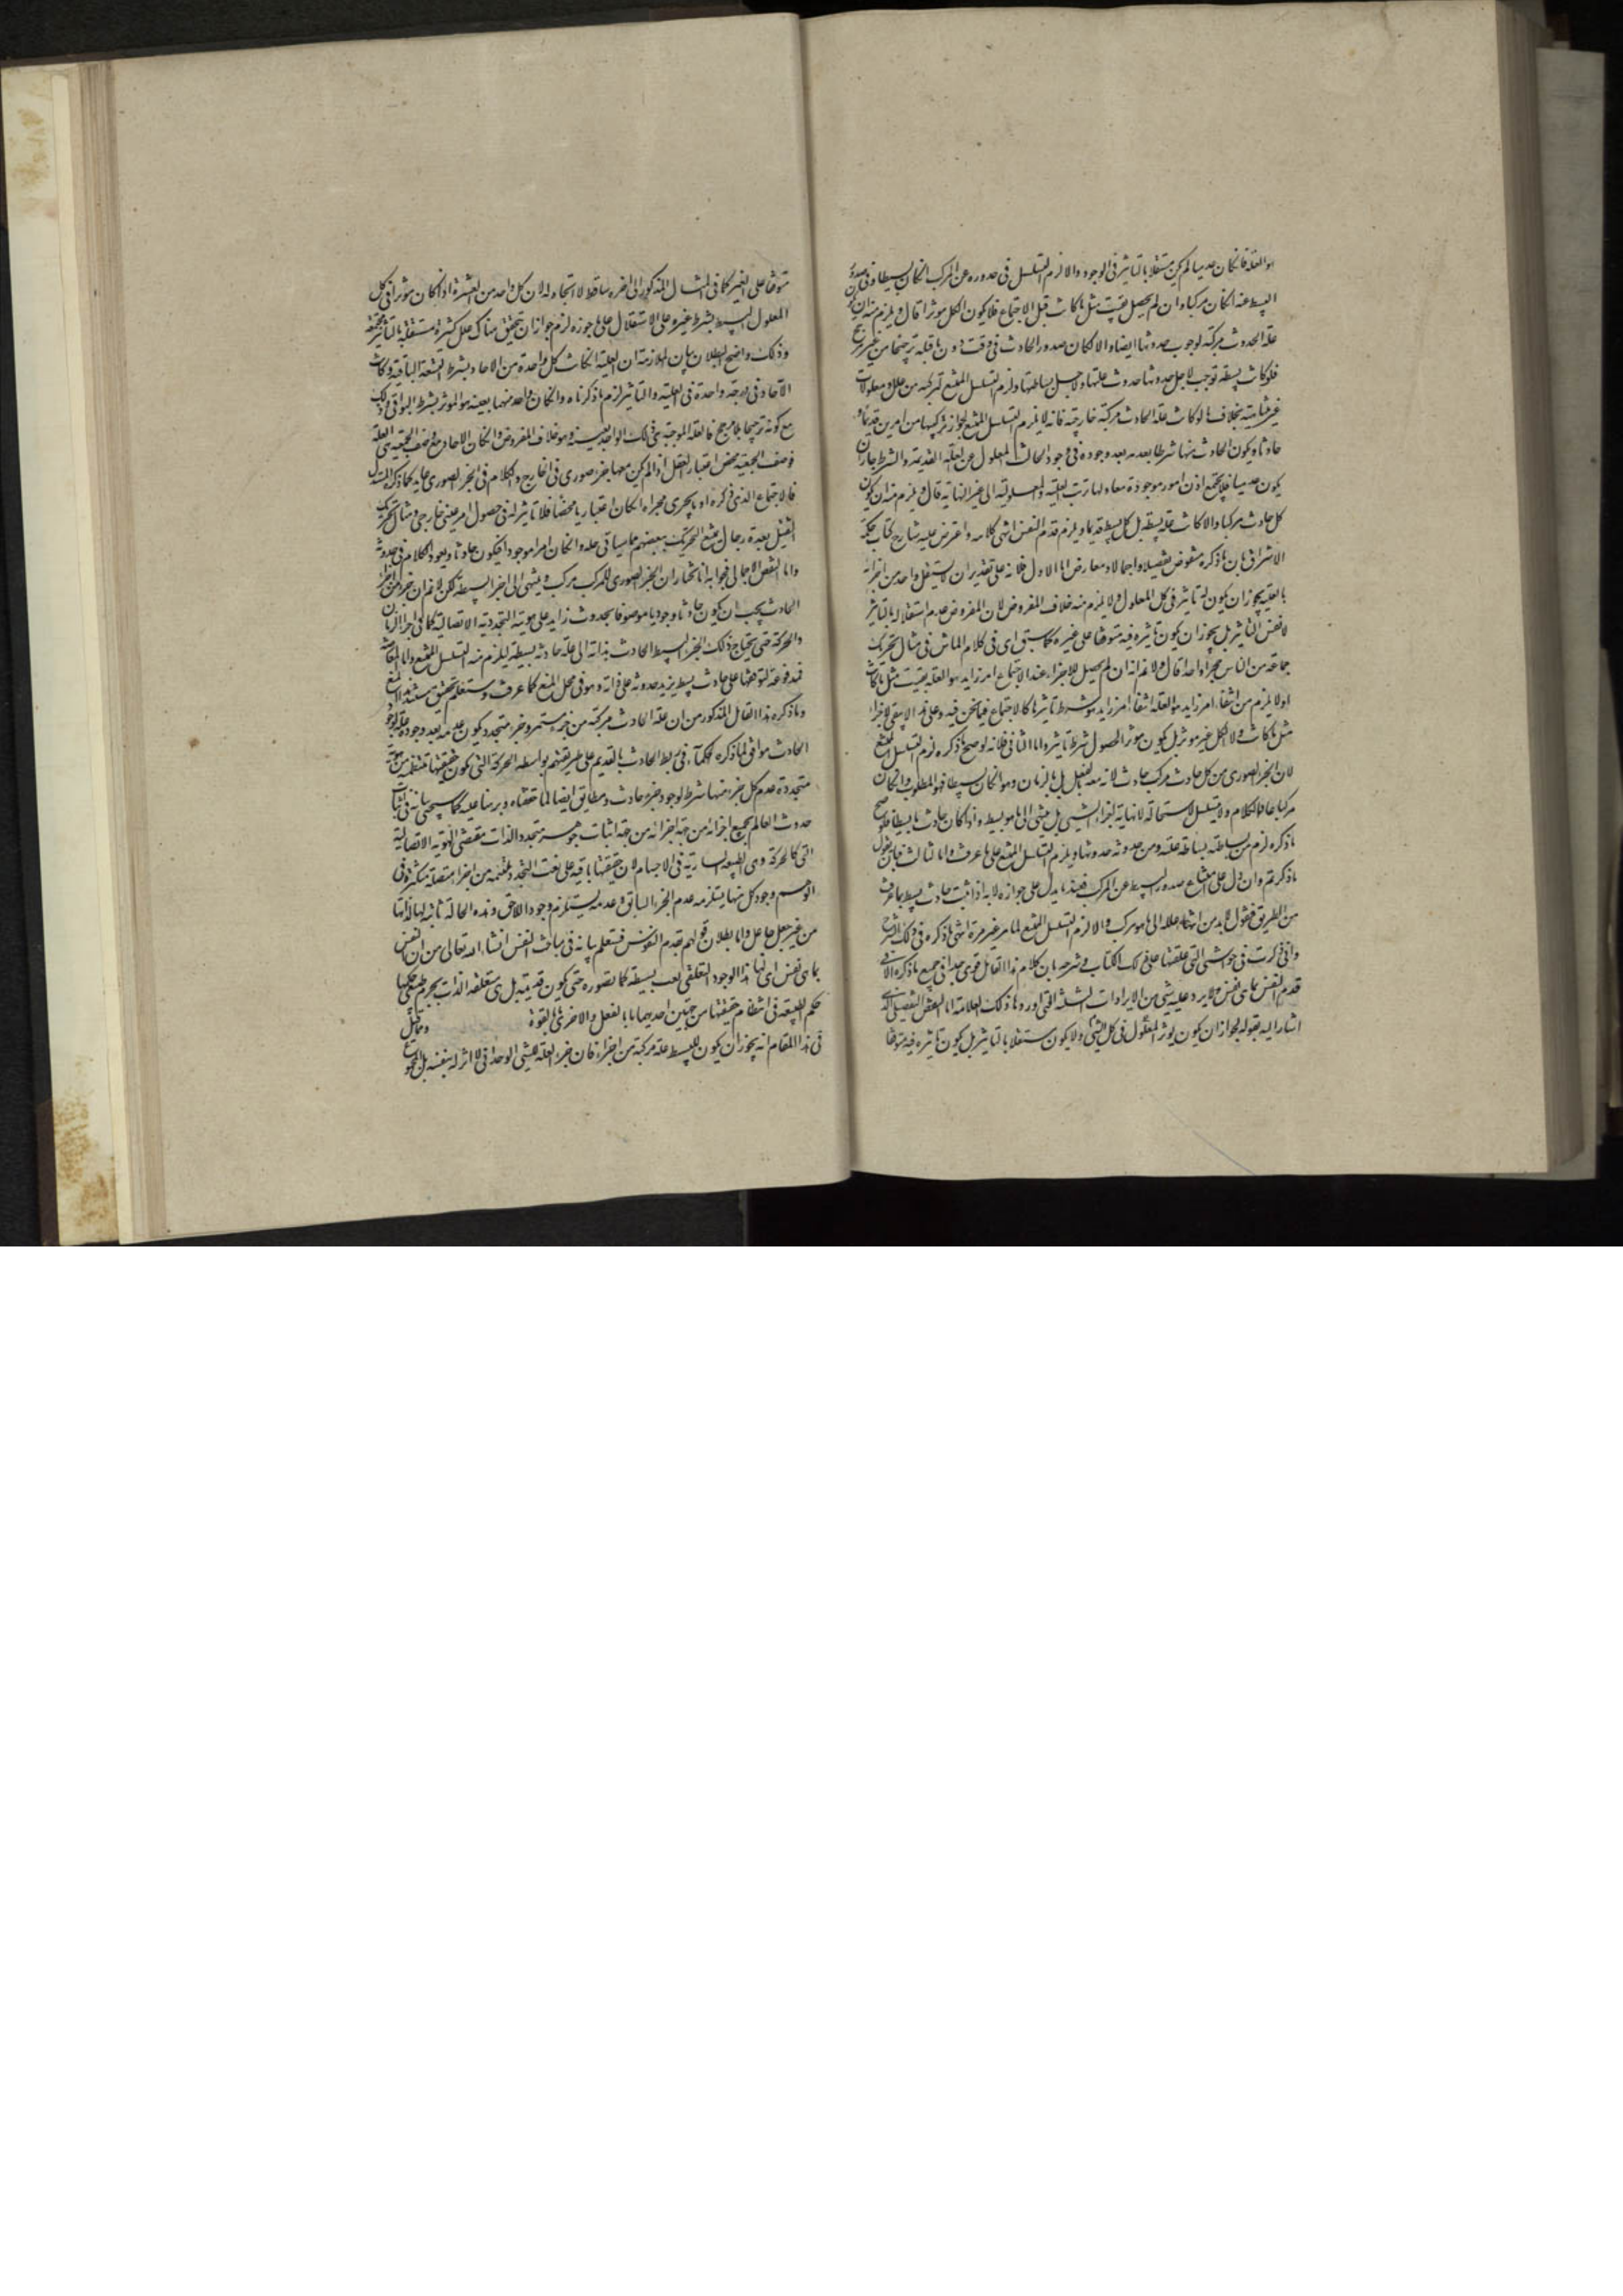 هو العلة فان كان عدميا لم يكن مستقلا بالتاثير فى الوجود والا لزم التسلسل فى صدوره عن المركب ان كان بسيطا وفى صدور
البسيط عنه ان كان مركبا وان لم يحصل بقيت مثل ما كانت قبل الاجتماع فلا يكون الكل موثرا قال ويلزم منه ان يكون
علة الحدوث مركبة لوجوب حدوثها ايضا والا لكان صدور الحادث فى وقت دون ما قبله ترجيحا من غير مرجح
فلو كانت بسيطة توجب لاجل حدوثها حدوث علتها ولاجل بساطتها ولزم التسلسل الممتنع لتركبه من علل ومعلولات
غير متناهية بخلاف ما لو كانت علة الحادث مركبة خارجية فانه لا يلزم التسلسل الممتنع لجواز تركبها من امرين قديم و
حادث ويكون الحادث منها شرطا بعدمه بعد وجوده فى وجود الحادث المعلول عن العلة القديمة والشرط جاز ان
يكون عدميا فلا يجتمع اذن امور موجودة معا ولها ترتب العلية والمعلولية الى غير النهاية قال ويلزم منه ان يكون
كل حادث مركبا والا كانت علته بسيطة بل كل بسيط قديما ويلزم قدم النفس انتهى كلامه واعترض عليه شارح كتاب حكمة
الاشراق بان ما ذكره منقوض تفصيلا واجمالا ومعارض اما الاول فلانه على تقدير ان لا يستقل واحد من اجزائه
بالعلية يجوز ان يكون له تاثير فى كل المعلول ولا يلزم منه خلاف المفروض لان المفروض عدم استقلاله بالتاثير
لا نفس التاثير بل يجوز ان يكون تاثيره فيه متوقفا على غيره كما سبق اى فى كلام الماتن فى مثال تحريك
جماعة من الناس حجرا واحدا قال ولا نم انه ان لم يحصل للاجزاء عند الاجتماع امر زايد هو العلة بقيت مثل ما كانت
اولا يلزم من انتفاء امر زايد هو العلة انتفاء امر زايد هو شرط تاثيرها كالاجتماع فيما نحن فيه وعلى هذا لا يبقى الاجزاء
مثل ما كانت ولا الكل غير موثر بل يكون موثرا لحصول شرط تاثيره واما الثانى فلانه لو صح ما ذكره لزم التسلسل الممتنع
لان الجزء الصورى من كل حادث مركب حادث لانه معه بالفعل بل بالزمان وهو ان كان بسيطا فهو المطلوب وان كان
مركبا عاد الكلام ولا يتسلسل لاستحالة لا نهاية اجزاء الشىء بل ينتهى الى ما هو بسيط واذا كان حادث ما بسيطا فلو صح
ما ذكره لزم من بساطته بساطة علته ومن حدوثه حدوثها ويلزم التسلسل الممتنع على ما عرفت واما الثالث فبان نقول
ما ذكرتم وان دل على امتناع صدور البسيط عن المركب فعندنا ما يدل على جوازه لانه اذا ثبت حادث بسيط بما عرفت
من الطريق فنقول لا بد من انتهاء علله الى ما هو مركب والا لزم التسلسل الممتنع لما مر غير مرة انتهى ما ذكره فى ذلك الشرح
وانى ذكرت فى حواشى التى علقتها على ذلك الكتاب وشرحه بان كلام هذا القائل قوى جدا فى جميع ما ذكره الا فى
قدم النفس بما هى نفس ولا يرد عليه شىء من الايرادات الثلثة التى اوردها ذلك العلامة اما النقض التفصيلى الذى
اشار اليه بقوله لجواز ان يكون يوثر المعلول فى كل الشىء ولا يكون مستقلا بالتاثير بل يكون تاثيره فيه متوقفا
متوقفا على الغير كما فى المثال المذكور الى اخره ساقط لا اتجاه له لان كل واحد من العشرة اذا كان موثرا فى كل
المعلول البسيط بشرط غيره على الاستقلال على ما جوزه لزم جواز ان يتحقق هناك علل كثيرة مستقلة بالتاثير مجتمعة
وذلك واضح البطلان بيان الملازمة ان العلية ان كانت كل واحدة من الاحاد بشرط التسعة الباقية وكانت
الآحاد فى درجة واحدة فى العلية والتاثير لزم ما ذكرناه وان كان واحد منهما بعينه هو الموثر بشرط البواقى وذلك
مع كونه ترجيحا بلا مرجح فالعلة الموجبة هى ذلك الواحد بعينه وهو خلاف المفروض وان كان الاحاد مع وصف الجمعية هى العلة
فوصف الجمعية محض اعتبار العقل اذا لم يكن معها جزء صورى فى الخارج والكلام فى الجزء الصورى عايد كما ذكره المستدل
فالاجتماع الذى ذكره او ما يجرى مجراه ان كان اعتباريا محضا فلا تاثير له فى حصول امر عينى خارجى ومثال تحريك
الثقيل بعدة رجال يمتنع التحريك ببعضهم مما سياتى حله وان كان امرا موجودا فيكون حادثا ويعود الكلام فى حدوثه
واما النقض الاجمالى فجوابه انا نختار ان الجزء الصورى للمركب مركب وينتهى الى اجزاء بسيطة لكن لا نم ان جزءا من اجزاء
الحادث يجب ان يكون حادثا وجوديا موصوفا بحدوث زايد على هويته التجددية الاتصالية كما فى اجزاء الزمان
والحركة حتى يحتاج ذلك الجزء البسيط الحادث بذاته الى علة حادثة بسيطة ليلزم منه التسلسل الممتنع واما المعارضة
فمدفوعة لتوقفها على حادث بسيط يزيد حدوثه على ذاته وهو فى محل المنع كما عرفت وستعلم تحقيق مستند هذا المنع
وما ذكره هذا القائل المذكور من ان علة الحادث مركبة من جزء مستمر وجزء متجدد يكون عدمه بعد وجوده علة لوجود
الحادث موافق لما ذكره الحكماء فى ربط الحادث بالقديم على طريقتهم بواسطة الحركة التى يكون حقيقتها منتظمة من هوية
متجددة عدم كل جزء منها شرط لوجود جزء حادث ومطابق ايضا لما حققناه وبرهنا عليه كما سيجىء بيانه فى اثبات
حدوث العالم بجميع اجزائه من جهة اجزائه من جهة اثبات جوهر متجدد الذات مقتضى الهوية الاتصالية
التى كالحركة وهى الطبيعة السارية فى الاجسام لان حقيقتها باقية على نعت التجدد ملتئمة من اجزاء متصلة متكثرة فى
الوهم وجود كل منها يستلزم عدم الجزء السابق وعدمه يستلزم وجود اللاحق وهذه الحالة ثابتة لها لذاتها
من غير جعل جاعل واما بطلان قولهم بقدم النفوس فستعلم بيانه فى مباحث النفس انشاء الله تعالى من ان النفس
بما هى نفس اى لها هذا الوجود التعلقى ليست بسيطة كما تصوره حتى يكون قديمة بل هى متعلقة الذات بجرم حكمها
حكم الطبيعة فى انتظام حقيقتها من جهتين احديهما ما بالفعل والاخرى ما بالقوة وما قيل
فى هذا المقام انه يجوز ان يكون للبسيط علة مركبة من اجزاء فان جزء العلة للشىء الوحدانى لا اثر له بنفسه بل المجموع